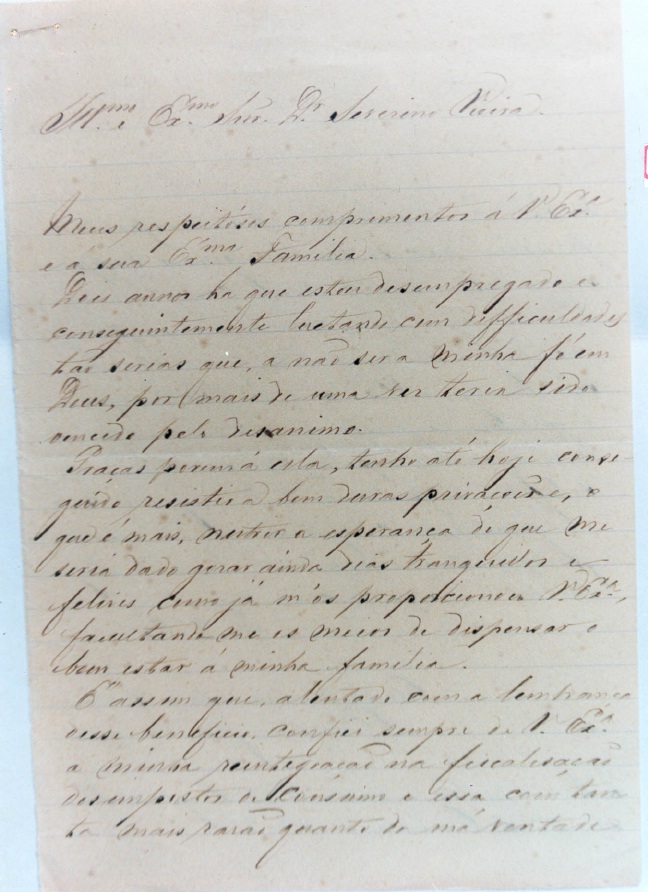 Ill.mo e Ex.mo Snr. Dr. Severino Vieira.
Meus respeitósos comprimentos á V. Ex.ª
e á sua Ex.ma Familia.
Dois annos ha que estou desempregado e
conseguintemente luctando com difficuldades
tão serias que, a não ser a minha fé em
Deus, por mais de uma vez teria sido
vencido pelo desanimo.
Graças porem á ella, tenho até hoje conse-
guido resistir a bem duras privações e, o
que é mais, nutrir a esperança de que me
seria dado gozar ainda dias tranquillos e
felizes como já m'os proporcionou V. Ex.ª,
facultando-me os meios de dispensar o
bem estar á minha familia.
É assim que, alentado com a lembrança
desse beneficio, confiei sempre de V. Ex.ª
a minha reintegração na fiscalisação
dos impostos de consumo e essa com tan-
ta mais razão quanto do má vontade